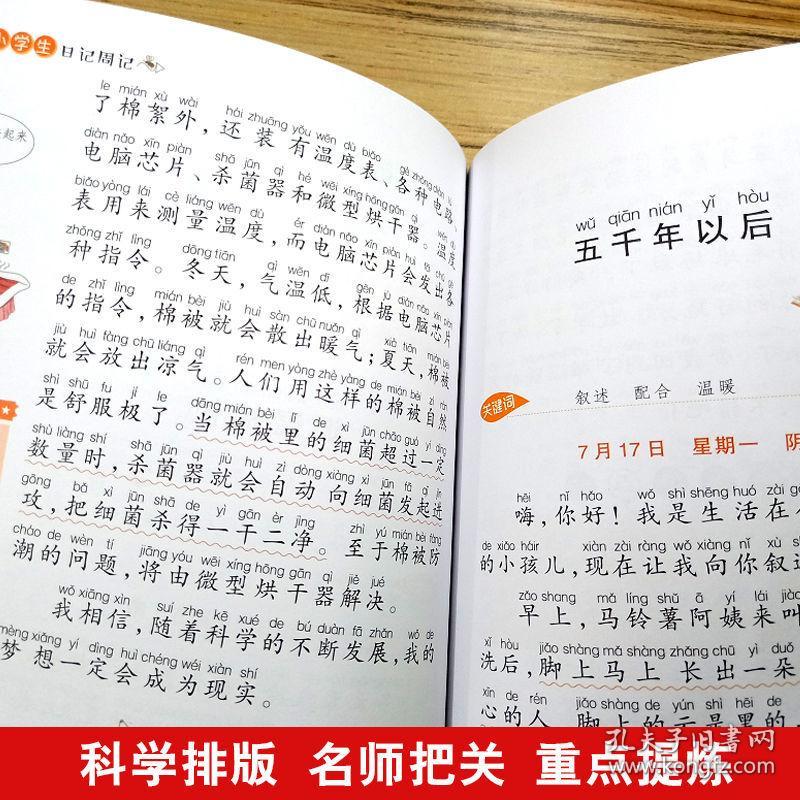 小学生 日记周记
起来
le mián xù wài hái zhuāng yǒu wēn dù biǎo gè zhǒng diàn lù
了棉絮外，还装有温度表、各种电路、
diàn nǎo xīn piàn shā jūn qì hé wēi xíng hōng gān qì wēn dù
电脑芯片、杀菌器和微型烘干器。温度
biǎo yòng lái cè liáng wēn dù ér diàn nǎo xīn piàn huì fā chū gè
表用来测量温度，而电脑芯片会发出各
zhǒng zhǐ lìng dōng tiān qì wēn dī gēn jù diàn nǎo xīn piàn
种指令。冬天，气温低，根据电脑芯片
de zhǐ lìng mián bèi jiù huì sàn chū nuǎn qì xià tiān mián bèi
的指令，棉被就会散出暖气；夏天，棉被
jiù huì fàng chū liáng qì rén men yòng zhè yàng de mián bèi zì rán
就会放出凉气。人们用这样的棉被自然
shì shū fu jí le dāng mián bèi lǐ de xì jūn chāo guò yí dìng
是舒服极了。当棉被里的细菌超过一定
shù liàng shí shā jūn qì jiù huì zì dòng xiàng xì jūn fā qǐ jìn
数量时，杀菌器就会自动向细菌发起进
gōng bǎ xì jūn shā de yì gān èr jìng zhì yú mián bèi fáng
攻，把细菌杀得一干二净。至于棉被防
cháo de wèn tí jiāng yóu wēi xíng hōng gān qì jiě jué
潮的问题，将由微型烘干器解决。
wǒ xiāng xìn suí zhe kē xué de bú duàn fā zhǎn wǒ de
我相信，随着科学的不断发展，我的
mèng xiǎng yí dìng huì chéng wéi xiàn shí
梦想一定会成为现实。
wǔ qiān nián yǐ hòu
五千年以后
关键词
叙述 配合 温暖
7月17日 星期一 阴
hēi nǐ hǎo wǒ shì shēng huó zài
嗨，你好！我是生活在
de xiǎo háir xiàn zài ràng wǒ xiàng nǐ xù
的小孩儿，现在让我向你叙
zǎo shang mǎ líng shǔ ā yí lái jiào
早上，马铃薯阿姨来叫
xǐ hòu jiǎo shàng mǎ shàng zhǎng chū yì duǒ
洗后，脚上马上长出一朵
xīn de rén jiǎo shàng de yún shì hēi de
心的人 脚上的云是黑的
科学排版 名师把关 重点提炼
孔夫子旧书网
www.kongfz.com